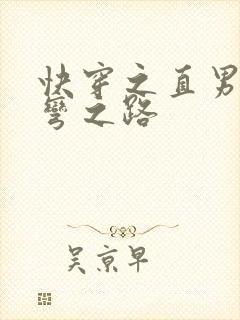 快穿之直男
弯之路
吴京早